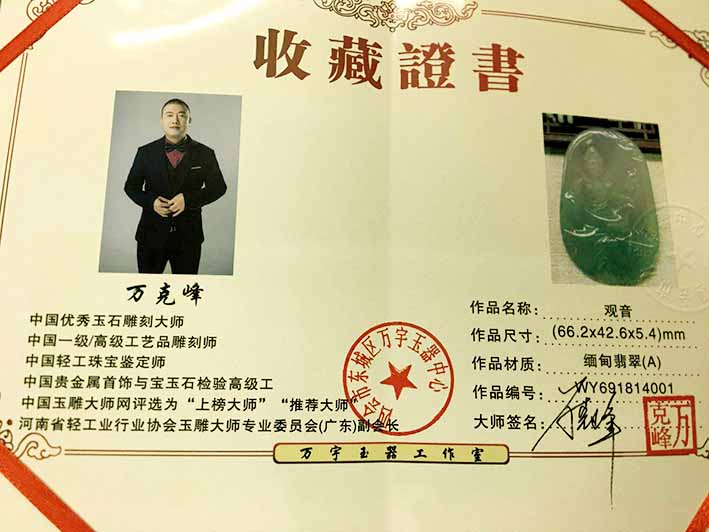 收藏證書
万克峰
中国优秀玉石雕刻大师
中国一级/高级工艺品雕刻师
中国轻工珠宝鉴定师
中国贵金属首饰与宝玉石检验高级工
中国玉雕大师网评选为“上榜大师”“推荐大师”
河南省轻工业行业协会玉雕大师专业委员会(广东)副会长
四会市东城区万宇玉器中心
作品名称: 观音
作品尺寸: (66.2x42.6x5.4)mm
作品材质: 缅甸翡翠(A)
作品编号: WY691814001
大师签名:
万克峰
万宇玉器工作室